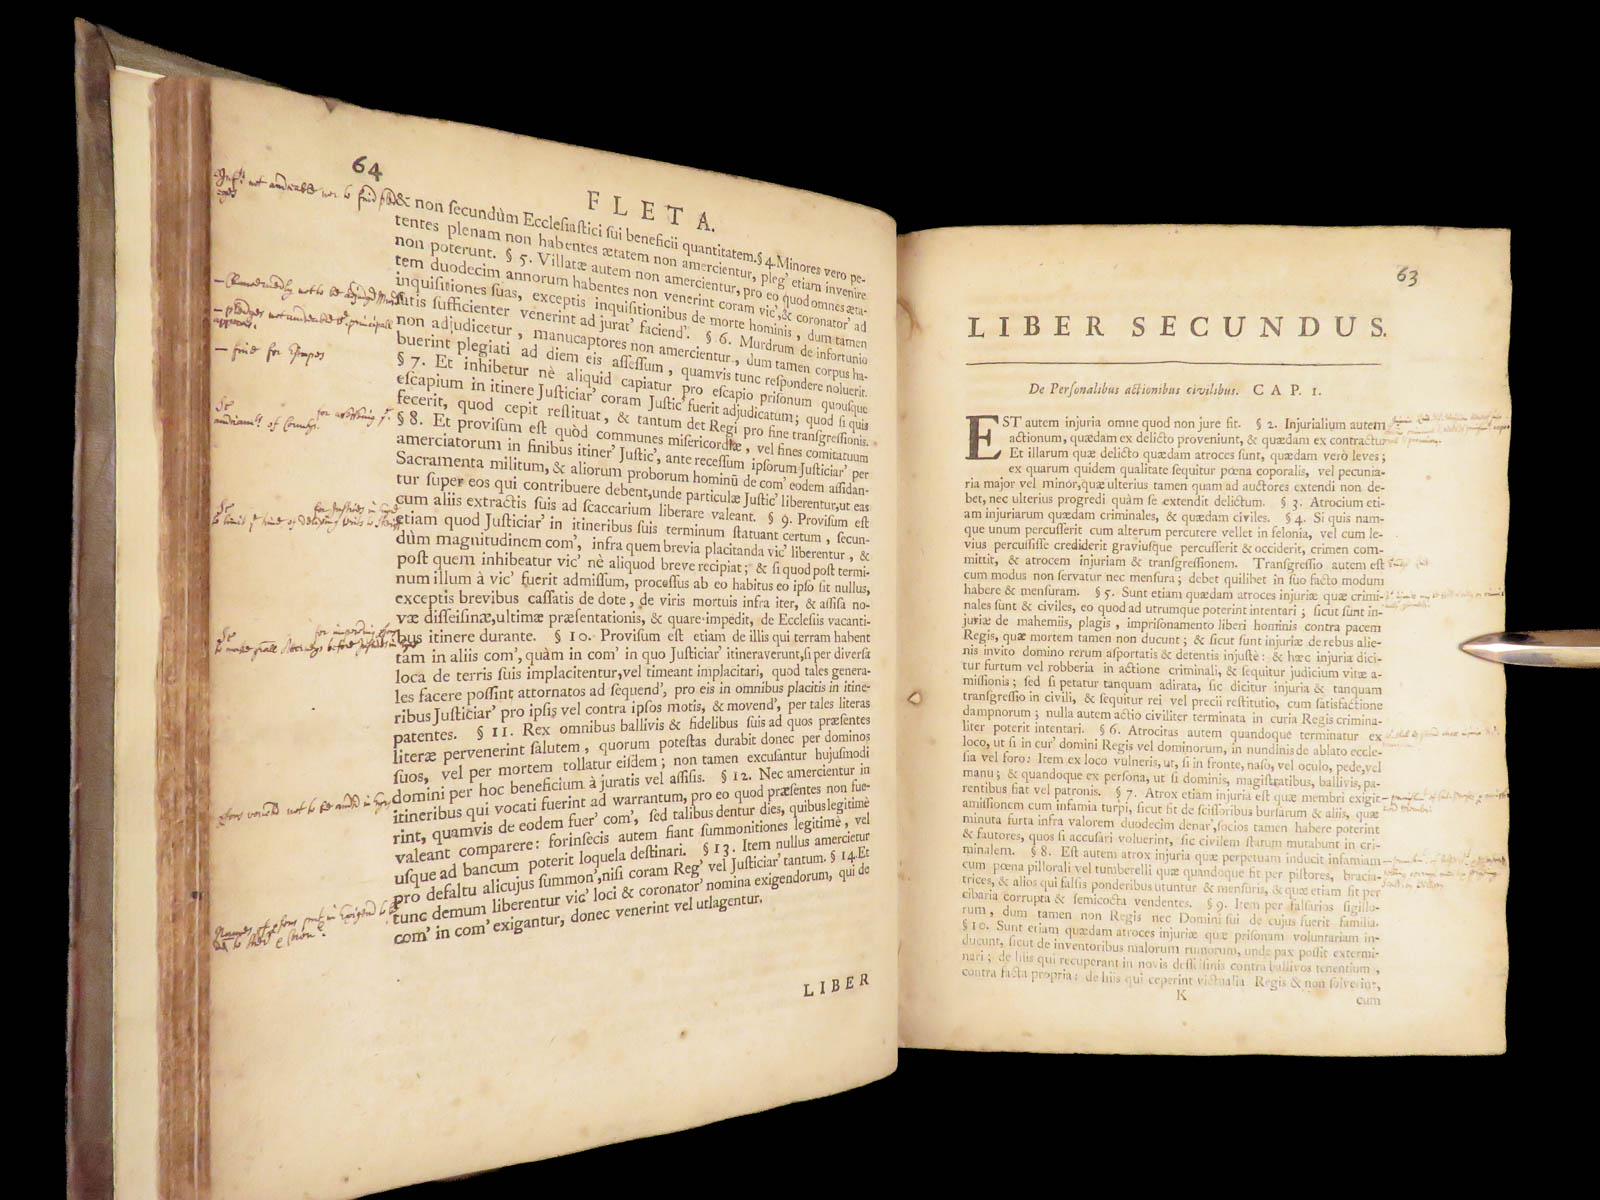 64
FLETA.
& non secundùm Ecclesiastici sui beneficii quantitatem. § 4. Minores vero pe-
tentes plenam non habentes ætatem non amercientur, pleg' etiam invenire
non poterunt. § 5. Villatæ autem non amercientur, pro eo quod omnes æta-
tem duodecim annorum habentes non venerint coram vic', & coronator' ad
inquisitiones suas, exceptis inquisitionibus de morte hominis, dum tamen
satis sufficienter venerint ad jurat' faciend'. § 6. Murdrum de infortunio
non adjudicetur, manucaptores non amercientur, dum tamen corpus ha-
buerint plegiati ad diem eis assessum, quamvis tunc respondere noluerit.
§ 7. Et inhibetur nè aliquid capiatur pro escapio prisonum quousque
escapium in itinere Justiciar' coram Justic' fuerit adjudicatum; quod si quis
fecerit, quod cepit restituat, & tantum det Regi pro fine transgressionis.
§ 8. Et provisum est quòd communes misericordiæ, vel fines comitatuum
amerciatorum in finibus itiner' Justic', ante recessum ipsorum Justiciar' per
Sacramenta militum, & aliorum proborum hominū de com' eodem assidan-
tur super eos qui contribuere debent, unde particulæ Justic' liberentur, ut eas
cum aliis extractis suis ad scaccarium liberare valeant. § 9. Provisum est
etiam quod Justiciar' in itineribus suis terminum statuant certum, secun-
dùm magnitudinem com', infra quem brevia placitanda vic' liberentur, &
post quem inhibeatur vic' nè aliquod breve recipiat; & si quod post termi-
num illum à vic' fuerit admissum, processus ab eo habitus eo ipso sit nullus,
exceptis brevibus cassatis de dote, de viris mortuis infra iter, & assisa no-
væ disseisinæ, ultimæ præsentationis, & quare impedit, de Ecclesiis vacanti-
bus itinere durante. § 10. Provisum est etiam de illis qui terram habent
tam in aliis com', quàm in com' in quo Justiciar' itineraverunt, si per diversa
loca de terris suis implacitentur, vel timeant implacitari, quod tales genera-
les facere possint attornatos ad sequend', pro eis in omnibus placitis in itine-
ribus Justiciar' pro ipsis vel contra ipsos motis, & movend', per tales literas
patentes. § 11. Rex omnibus ballivis & fidelibus suis ad quos præsentes
literæ pervenerint salutem, quorum potestas durabit donec per dominos
suos, vel per mortem tollatur eisdem; non tamen excusantur hujusmodi
domini per hoc beneficium à juratis vel assisis. § 12. Nec amercientur in
itineribus qui vocati fuerint ad warrantum, pro eo quod præsentes non fue-
rint, quamvis de eodem fuer' com', sed talibus dentur dies, quibus legitimè
valeant comparere: forinsecis autem fiant summonitiones legitimè, vel
usque ad bancum poterit loquela destinari. § 13. Item nullus amercietur
pro defaltu alicujus summon', nisi coram Reg' vel Justiciar' tantum. § 14. Et
tunc demum liberentur vic' loci & coronator' nomina exigendorum, qui de
com' in com' exigantur, donec venerint vel utlagentur.
LIBER
63
LIBER SECUNDUS.
De Personalibus actionibus civilibus. CAP. I.
EST autem injuria omne quod non jure fit. § 2. Injurialium autem
actionum, quædam ex delicto proveniunt, & quædam ex contractu
Et illarum quæ delicto quædam atroces sunt, quædam verò leves;
ex quarum quidem qualitate sequitur pœna coporalis, vel pecunia-
ria major vel minor, quæ ulterius tamen quam ad auctores extendi non de-
bet, nec ulterius progredi quàm se extendit delictum. § 3. Atrocium eti-
am injuriarum quædam criminales, & quædam civiles. § 4. Si quis nam-
que unum percusserit cum alterum percutere vellet in felonia, vel cum le-
vius percussisse crediderit graviusque percusserit & occiderit, crimen com-
mittit, & atrocem injuriam & transgressionem. Transgressio autem est
cum modus non servatur nec mensura; debet quilibet in suo facto modum
habere & mensuram. § 5. Sunt etiam quædam atroces injuriæ quæ crimi-
nales sunt & civiles, eo quod ad utrumque poterint intentari; sicut sunt in-
juriæ de mahemiis, plagis, imprisonamento liberi hominis contra pacem
Regis, quæ mortem tamen non ducunt; & sicut sunt injuriæ de rebus alie-
nis invito domino rerum asportatis & detentis injustè: & hæc injuria dici-
tur furtum vel robberia in actione criminali, & sequitur judicium vitæ a-
missionis; sed si petatur tanquam adirata, sic dicitur injuria & tanquam
transgressio in civili, & sequitur rei vel precii restitutio, cum satisfactione
dampnorum; nulla autem actio civiliter terminata in curia Regis crimina-
liter poterit intentari. § 6. Atrocitas autem quandoque terminatur ex
loco, ut si in cur' domini Regis vel dominorum, in nundinis de ablato eccle-
sia vel foro: Item ex loco vulneris, ut, si in fronte, naso, vel oculo, pede, vel
manu; & quandoque ex persona, ut si dominis, magistratibus, ballivis, pa-
rentibus fiat vel patronis. § 7. Atrox etiam injuria est quæ membri exigit
amissionem cum infamia turpi, sicut fit de scissoribus bursarum & aliis, quæ
minuta furta infra valorem duodecim denar', socios tamen habere poterint
& fautores, quos si accusari voluerint, sic civilem statum mutabunt in cri-
minalem. § 8. Est autem atrox injuria quæ perpetuam inducit infamiam
cum pœna pillorali vel tumberelli quæ quandoque fit per pistores, bracia-
trices, & alios qui falsis ponderibus utuntur & mensuris, & quæ etiam fit per
cibaria corrupta & semicocta vendentes. § 9. Item per falsarios sigillo-
rum, dum tamen non Regis nec Domini sui de cujus fuerit familia.
§ 10. Sunt etiam quædam atroces injuriæ quæ prisonam voluntariam in-
ducunt, sicut de inventoribus malorum rumorum, unde pax possit extermi-
nari; de hiis qui recuperant in novis dessisinis contra ballivos tenentium,
contra facta propria: de hiis qui ceperint victualia Regis & non solverint,
K
cum